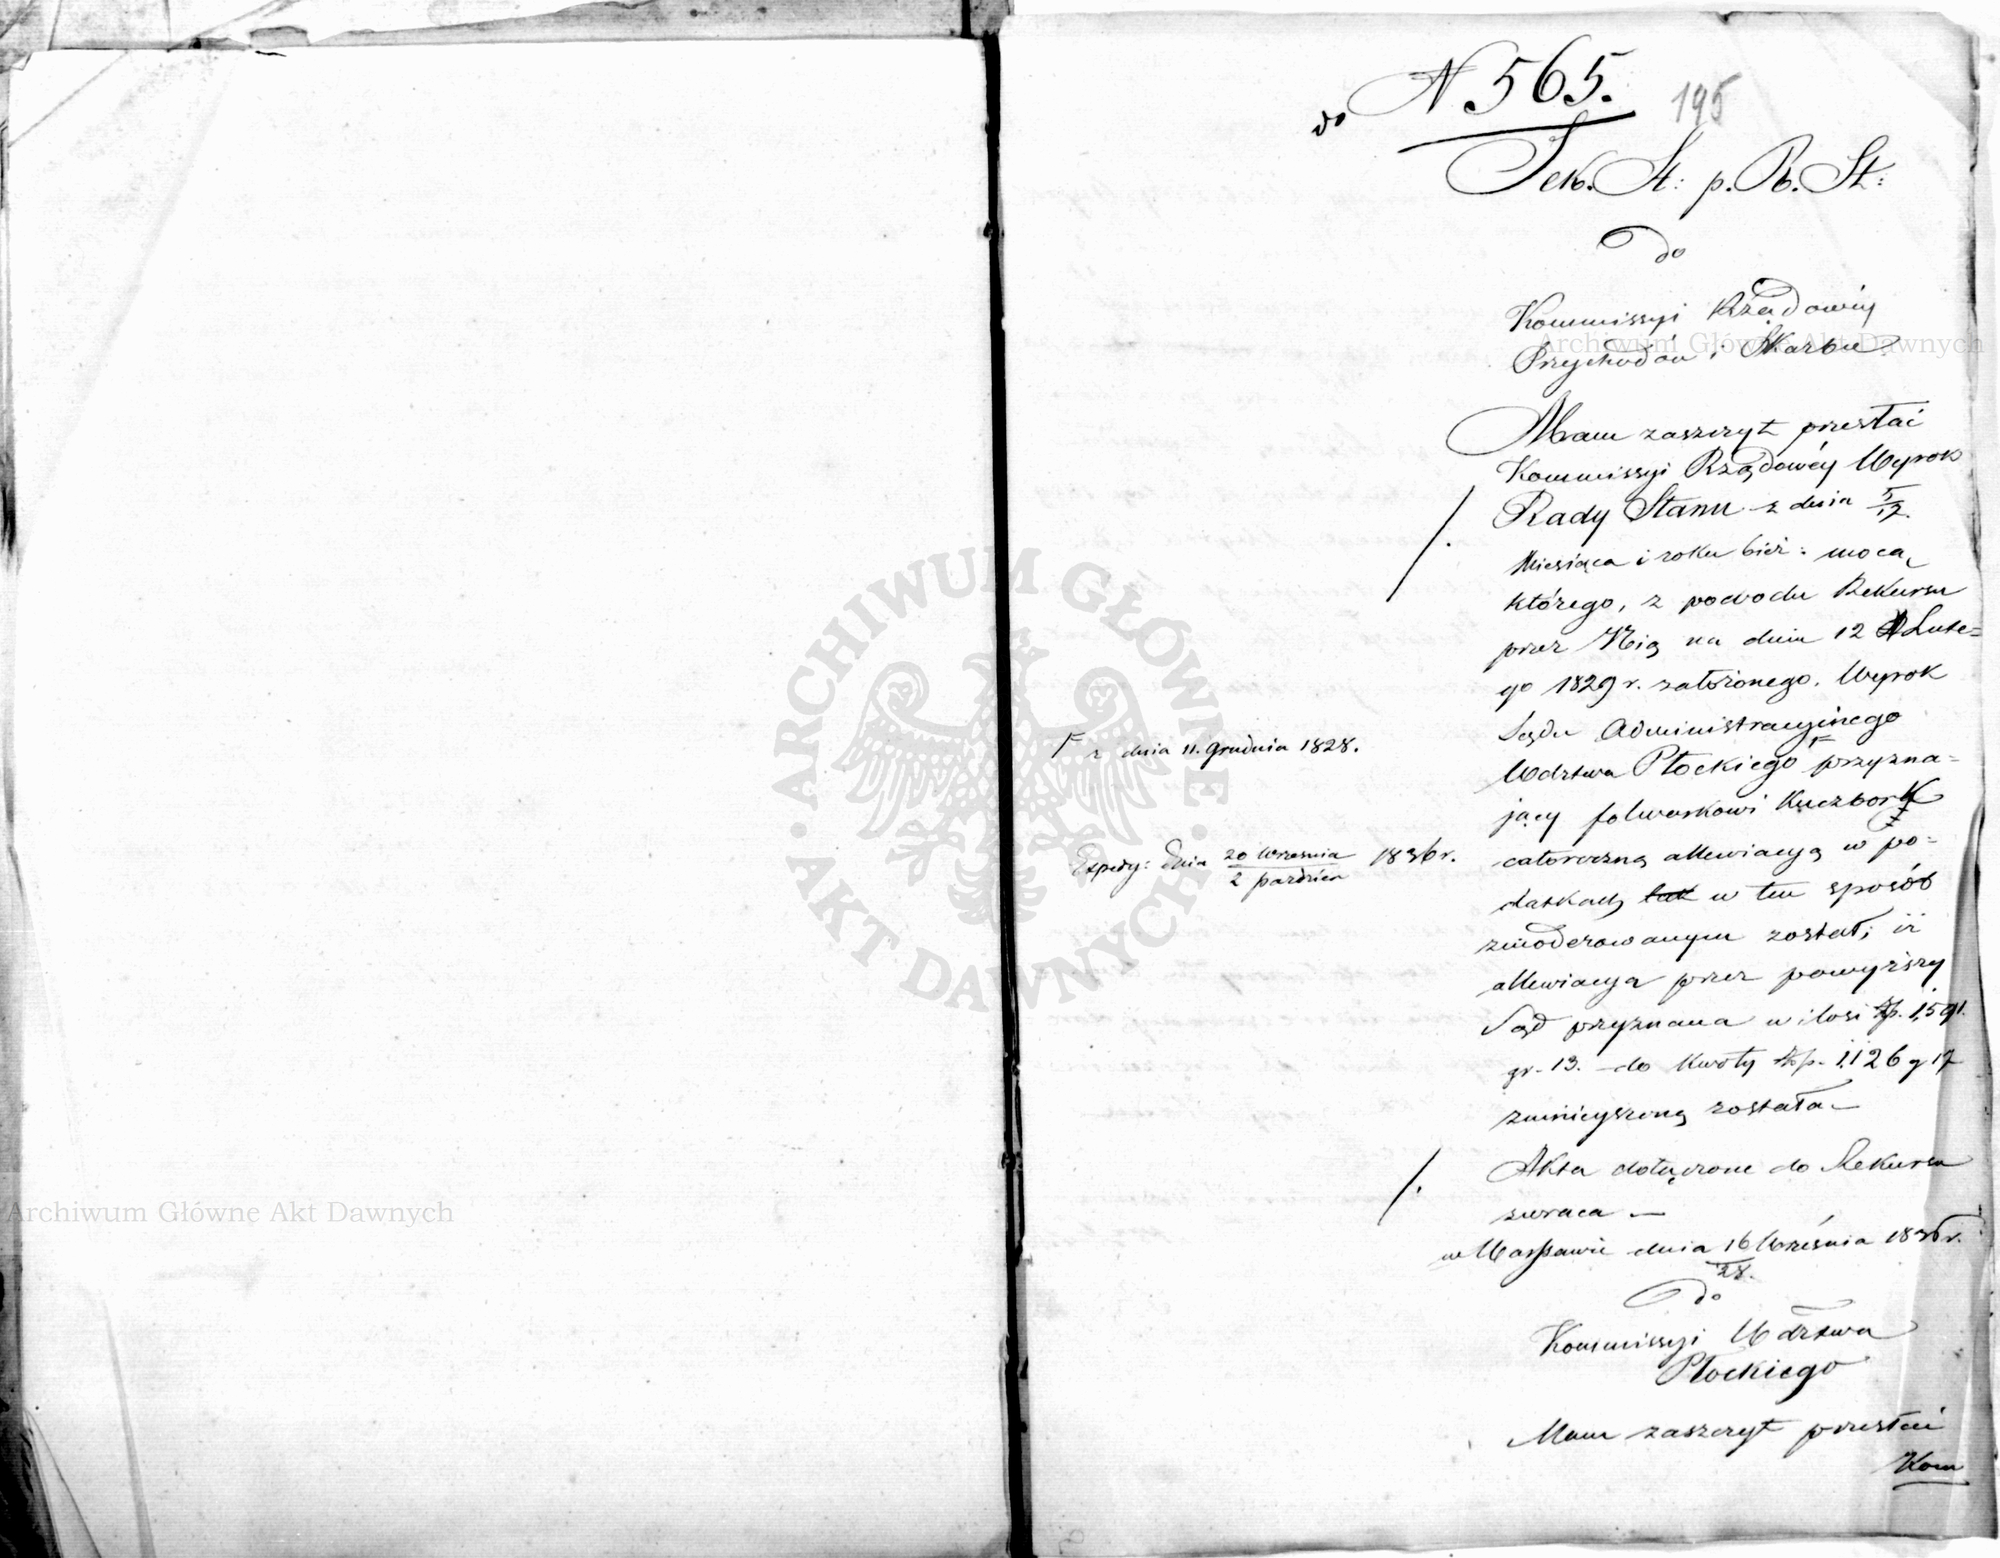 do N 565.
195
Sek. St: p. R. St:
Do
Kommissyi Rządowéy
Przychodów i Skarbu
Mam zaszczyt przesłać
Kommissyi Rządowéy Wyrok
Rady Stanu z dnia 5/17.
Miesiąca i roku bież: mocą
którego, z powodu Rekursu
przez Nią na dniu 12 Lute=
go 1829 r. założonego, Wyrok
Sądu Administracyjnego
Wdztwa Płockiego Γ przyzna=
Γ z dnia 11. Grudnia 1828.
jący folwarkowi Kuczbork
całoroczną allewiacyą w po=
Expedy: Dnia 20 Września / 2 Paździer 1836 r.
datkach tak w ten sposób
zmoderowanym został; iż
allewiacya przez powyższy
Sąd przyznana w ilosi Złp. 1,591.
gr. 13. do kwoty Złp. 1,126 g 17
zmnieyszoną została.
Akta dołączone do Rekursu
zwraca —
w Warszawie dnia 16/28. Września 1836 r.
Do
Kommissyi Wdztwa
Płockiego
Mam zaszczyt przesłać
Kom
Archiwum Główne Akt Dawnych
Archiwum Główne Akt Dawnych
ARCHIWUM GŁÓWNE · AKT DAWNYCH ·